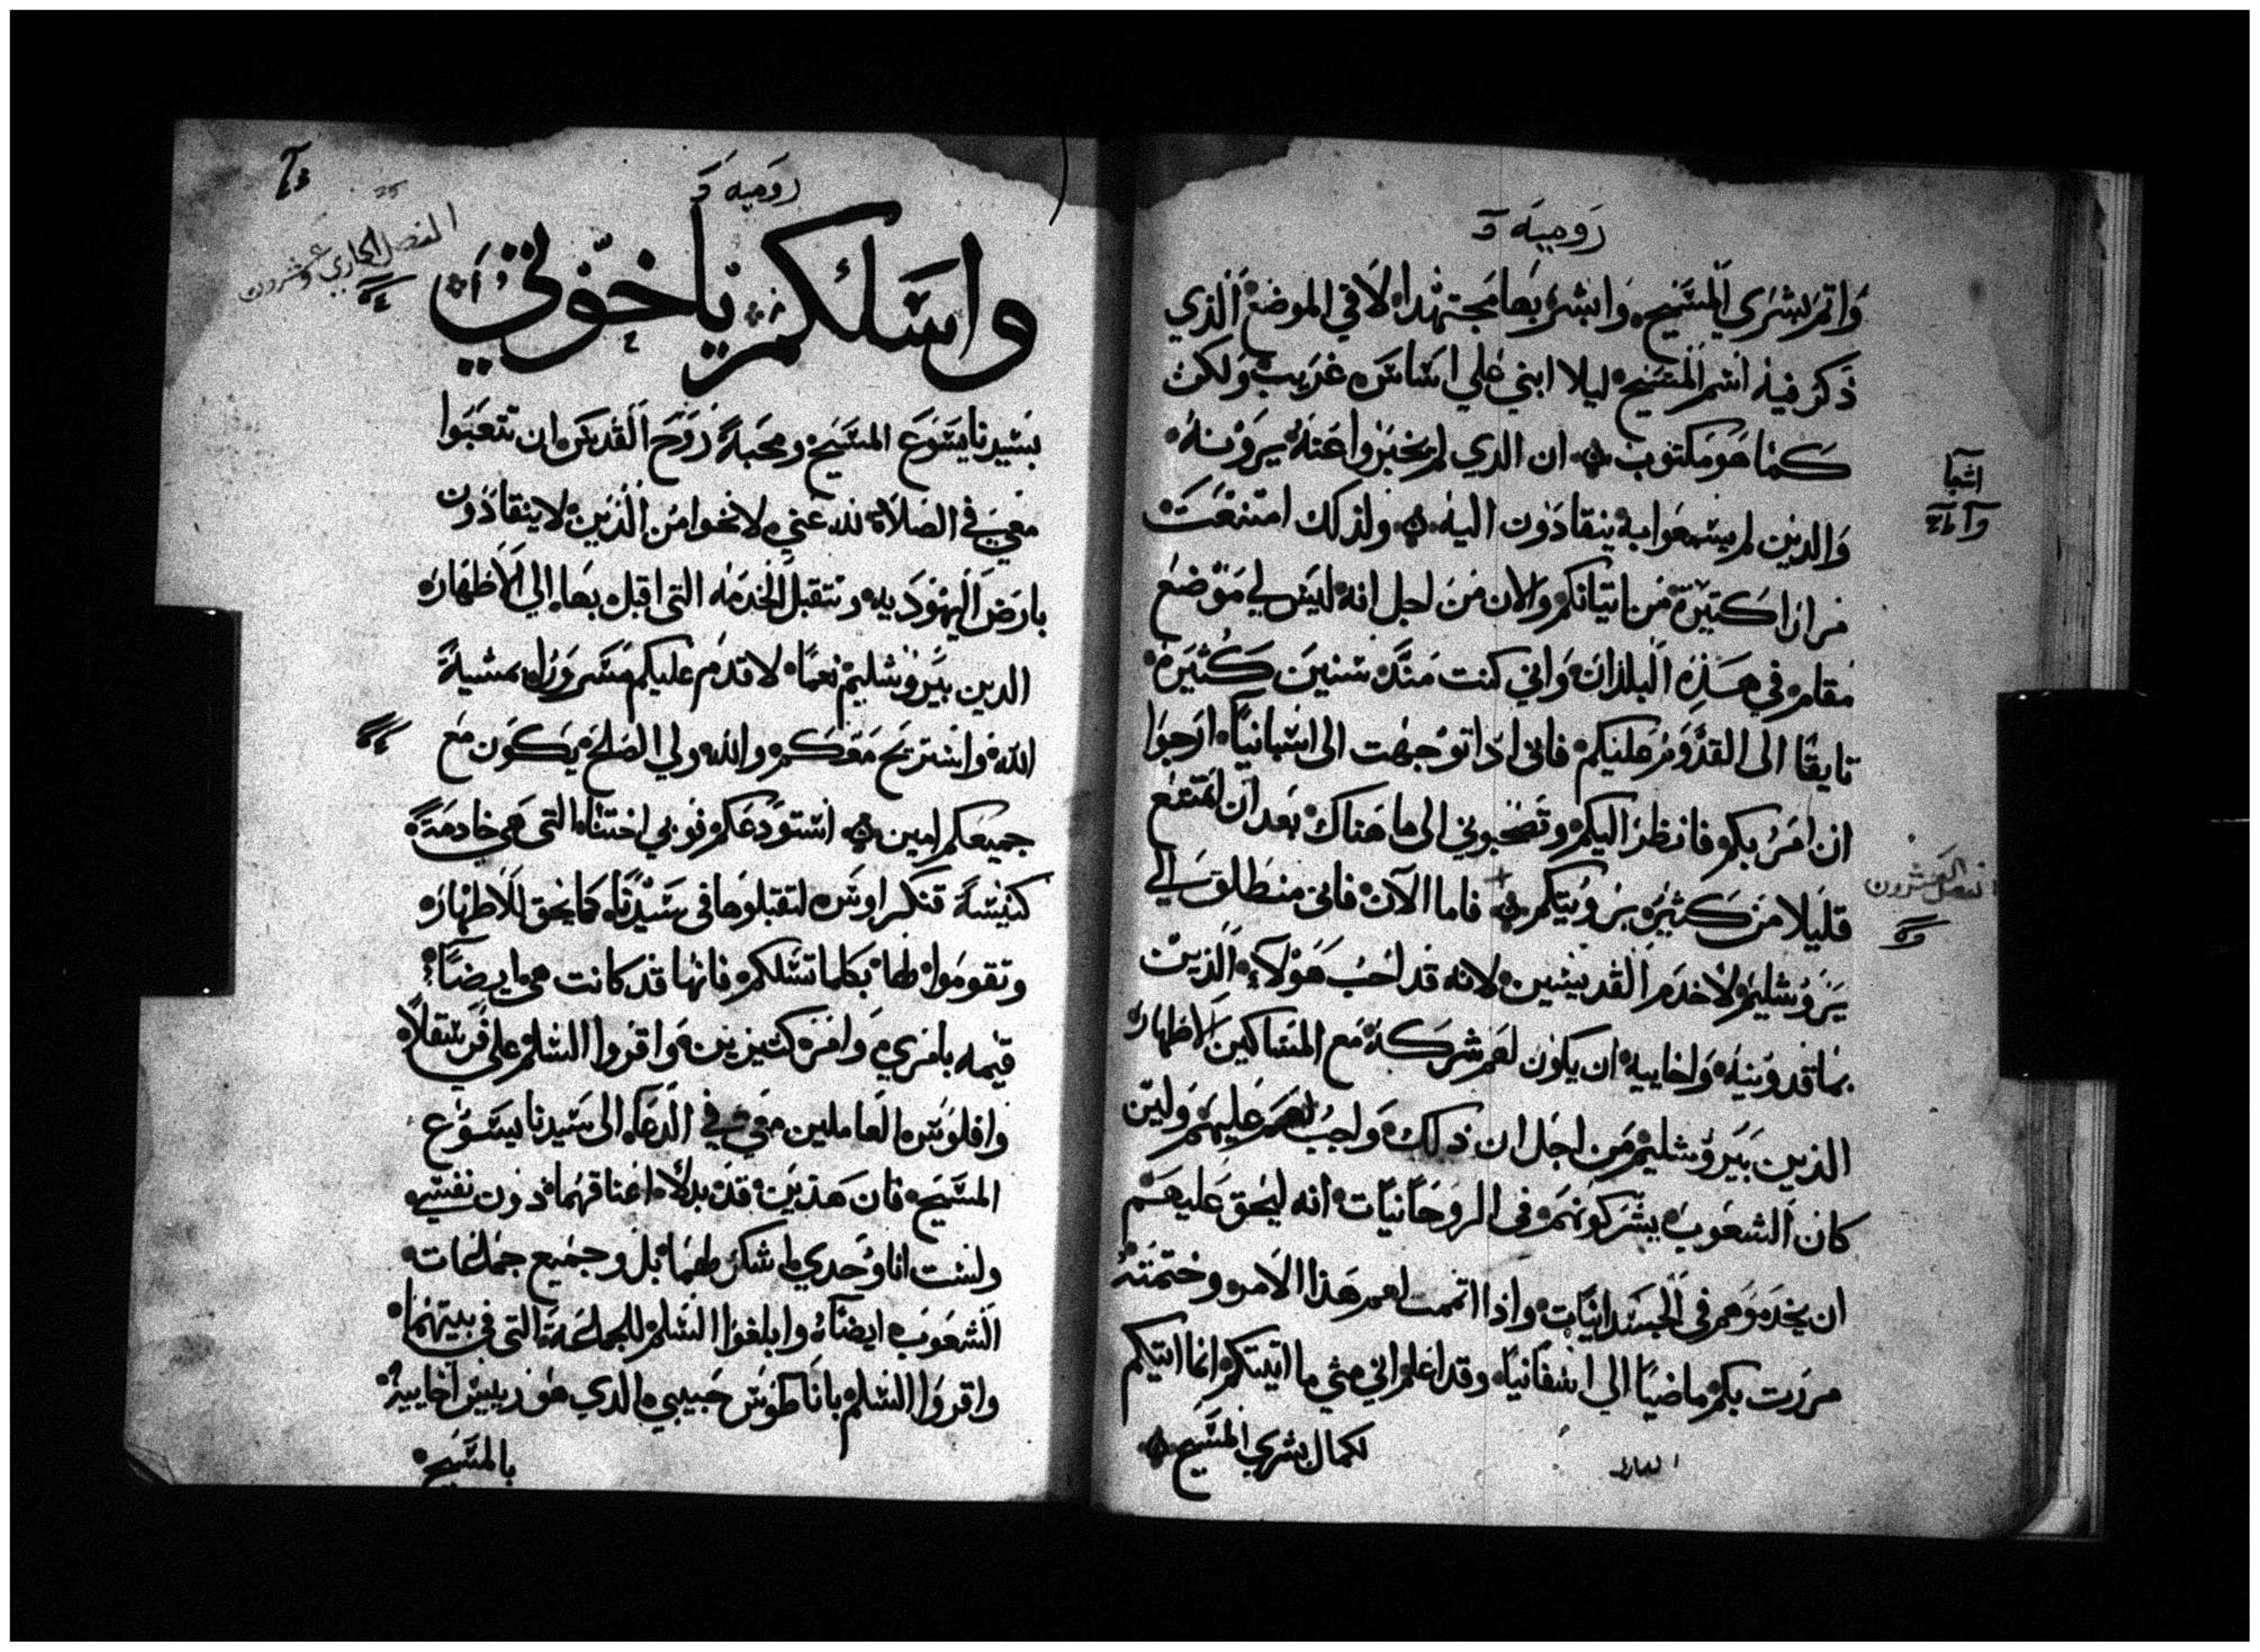 رومية
واتم بشري المسيح وابشر بها مجتهدا لا في الموضع الذي
ذكر فيه اسم المسيح ليلا ابني علي اساس غريب ولكن
كما هو مكتوب ان الدي لم يخبروا عنه يرونه
والدين لم يسمعوا به ينقادون اليه ولذلك امتنعت
مرارا كتيرة من اتيانكم والان من اجل انه ليس لي موضع
مقام في هذه البلدان واني كنت مند سنين كثيرة
تايقا الى القدوم عليكم فاني اذا توجهت الى اسبانيا ارجوا
ان امر بكم فانظر اليكم وتصحبوني الى ما هناك بعد ان اتمتع
قليلا من كثير برويتكم فاما الآن فاني منطلق الي
يروشليم لاخدم القديسين لانه قد احب هولاء الذين
بماقدونيه واخاييه ان يكون لهم شركة مع المساكين الاطهار
الذين بيروشليم من اجل ان ذلك واجب لهم عليهم ولين
كان الشعوب يشركونهم في الروحانيات انه ليحق عليهم
ان يخدموهم في الجسدانيات واذا اتممت لهم هذا الامر وختمته
مررت بكم ماضيا الي اسفانيا وقد اعلم اني متي ما اتيتكم انما اتيكم
لكمال بشري المسيح
اشعيا
الفصل العشرون
رومية
الفصل الحادي عشرون
واسلكم ياخوتي
بسيدنا يسوع المسيح ومحبة روح القدس ان تتعبوا
معي في الصلاة لله عني لانجوا من الذين لا ينقادون
بارض اليهوديه وتتقبل الخدمه التي اقبل بها الي الاطهار
الدين بيروشليم نعما لاقدم عليكم مسرورا بمشية
الله واستريح معكم والله ولي الصلح يكون مع
جميعكم امين استودعكم فوبي اختنا التي هي خادمة
كنيسة قنكراوس لتقبلوها في سيدنا كما يحق للاطهار
وتقوموا لها بكلما تسلكم فانها قد كانت هي ايضا
قيمه بامري وامر كثيرين واقروا السلم علي فرسقلا
واقلوس العاملين معي في الدعاء الى سيدنا يسوع
المسيح فان هذين قد بدلا اعناقهما دون نفسي
ولست انا وحدي اشكر لهما بل وجميع جماعات
الشعوب ايضا وابلغوا السلم للجماعة التي في بيتهما
واقروا السلم بافاطوس حبيبي الدي هو ريس اخاييه
بالمسيح